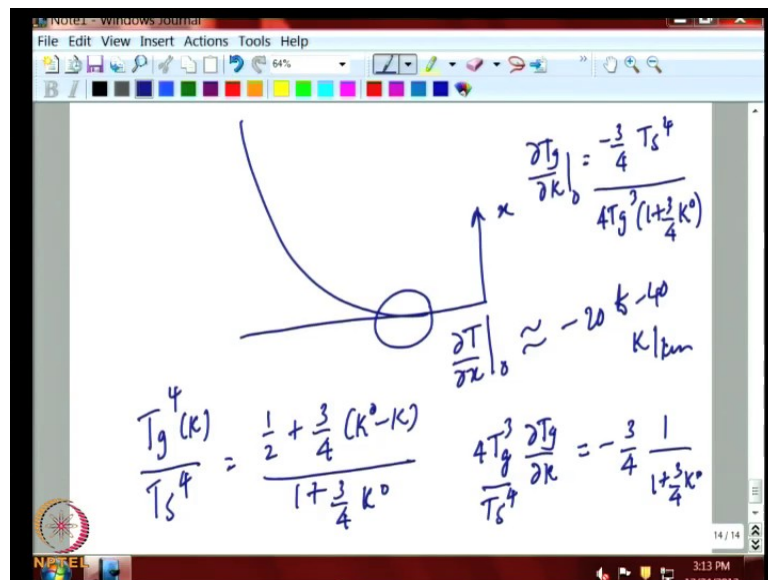 Note1 - Windows Journal
File Edit View Insert Actions Tools Help
64%
B I
∂Tg/∂K|₀ = (-3/4 Ts⁴)/(4Tg³(1+3/4 K⁰))
x
∂T/∂x|₀ ≈ -20 to -40
K/km
Tg⁴(K)/Ts⁴ = (1/2 + 3/4 (K⁰-K))/(1+3/4 K⁰)
4Tg³/Ts⁴ ∂Tg/∂K = -3/4 1/(1+3/4 K⁰)
14 / 14
NPTEL
3:13 PM